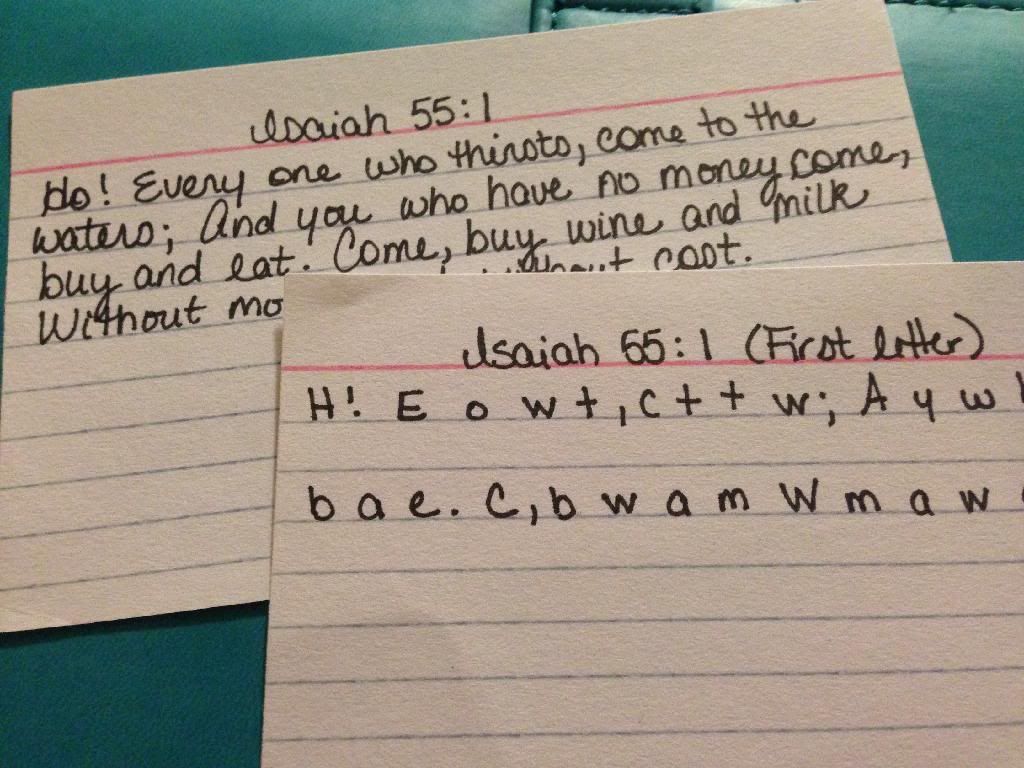 Isaiah 55:1
Ho! Every one who thirsts, come to the
waters; And you who have no money come,
buy and eat. Come, buy wine and milk
Without cost.
Isaiah 55:1 (First letter)
H! E o w t, c t t w; A y w
b a e. C, b w a m W m a w